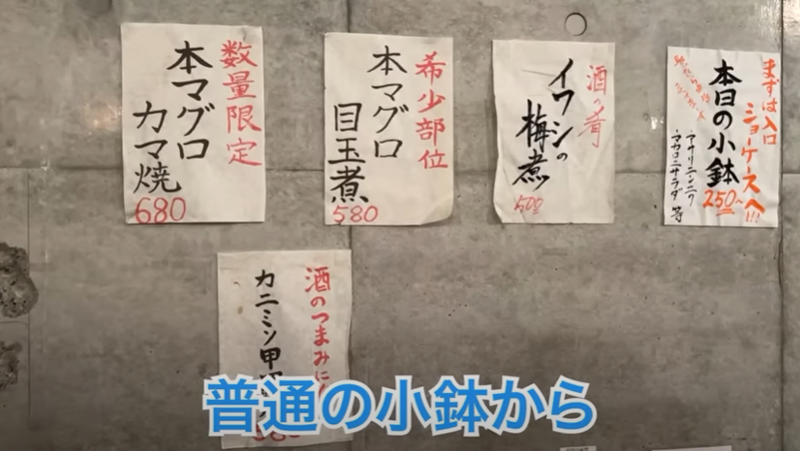 数量限定
本マグロ
カマ焼
680
希少部位
本マグロ
目玉煮
580
酒の肴
イワシの
梅煮
500
まずは入口
ショーケースへ!!!
本日の小鉢
250~
・マカロニサラダ 等
酒のつまみに
カニミソ甲
普通の小鉢から